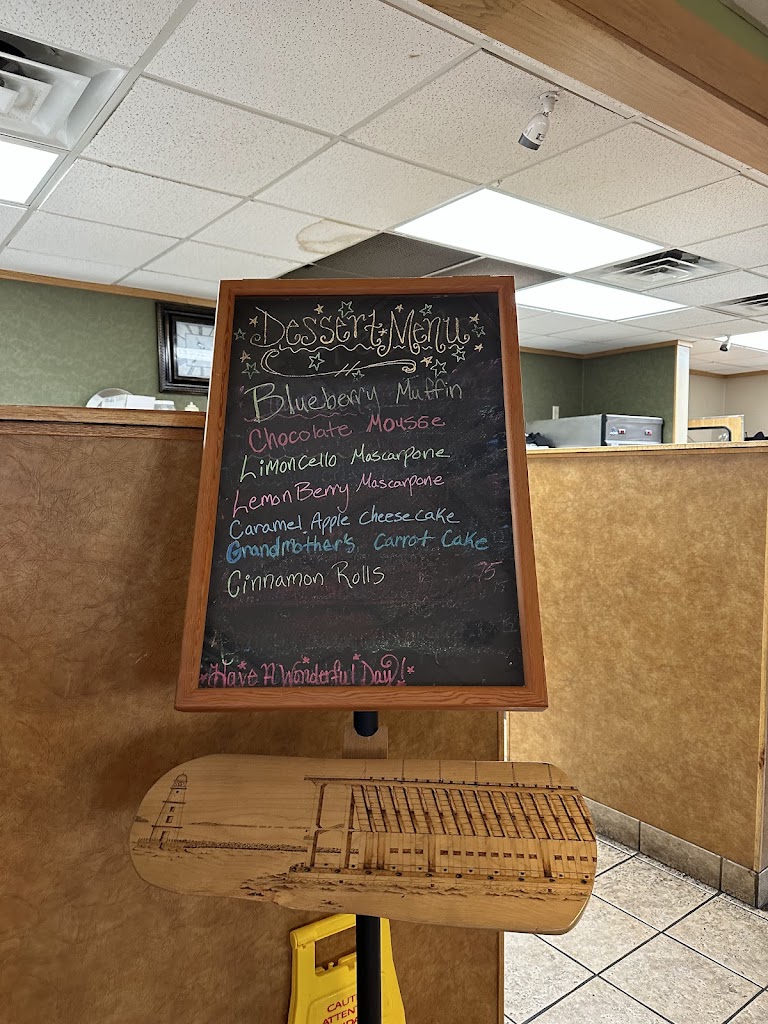 Dessert Menu
Blueberry Muffin
Chocolate Mousse
Limoncello Mascarpone
Lemon Berry Mascarpone
Caramel Apple Cheesecake
Grandmother's Carrot Cake
Cinnamon Rolls
75
Have A Wonderful Day!
CAUT
ATTEN